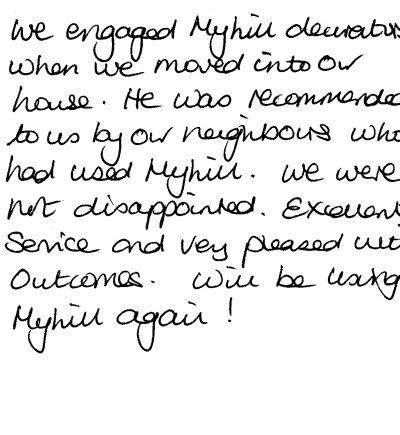 We engaged Myhill decorators
when we moved into our
house. He was recommended
to us by our neighbours who
had used Myhill. We were
not disappointed. Excellent
Service and very pleased with
Outcomes. Will be using
Myhill again!